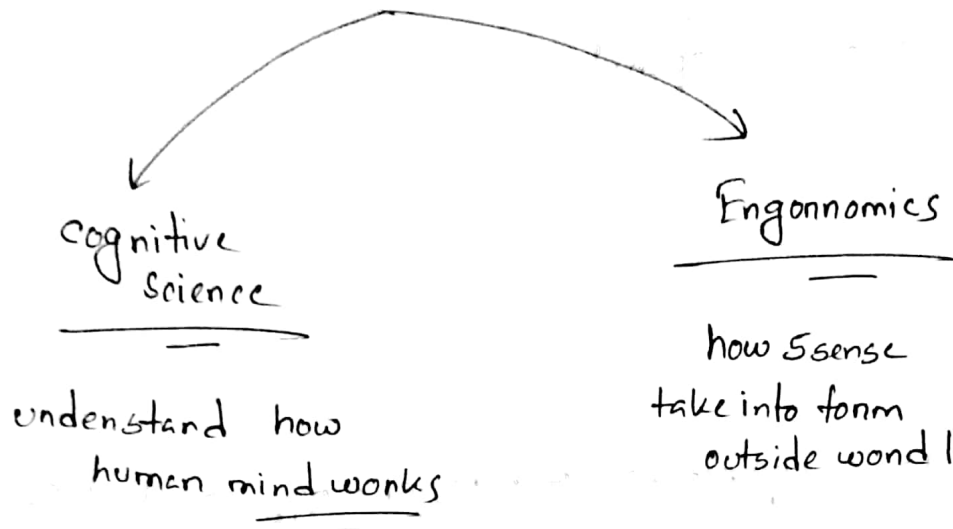 cognitive
science
understand how
human mind works
Ergonnomics
how 5sense
take into form
outside world